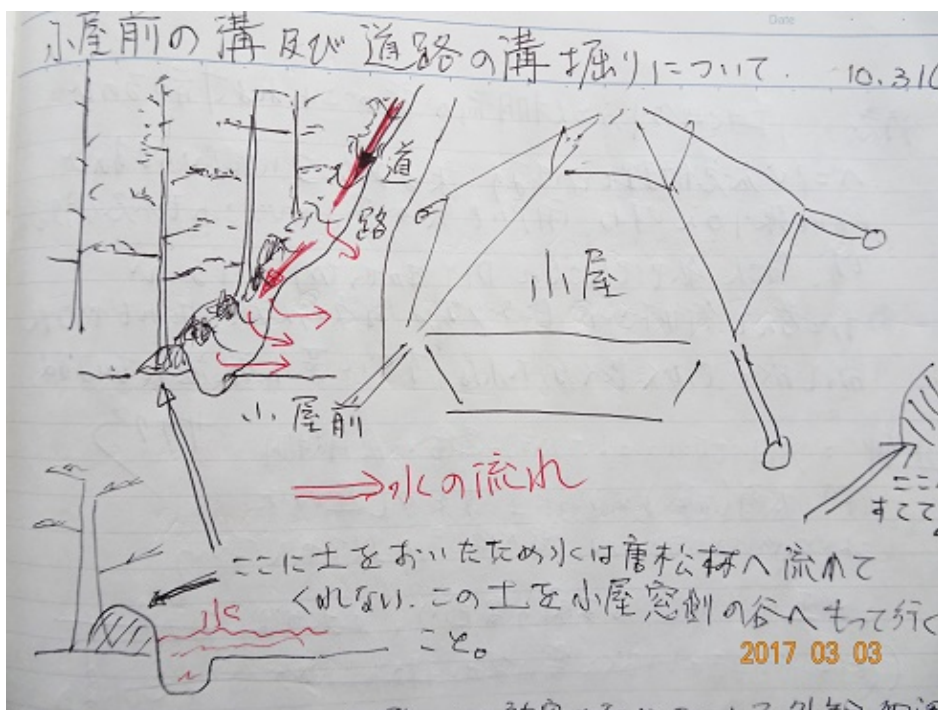 小屋前の溝及び道路の溝掘りについて. 10.3.10
道路
小屋
小屋前
水の流れ
ここ
すてて
ここに土をおいたため水は唐松林へ流れて
くれない. この土を小屋窓側の谷へもって行く
こと。
水
2017 03 03